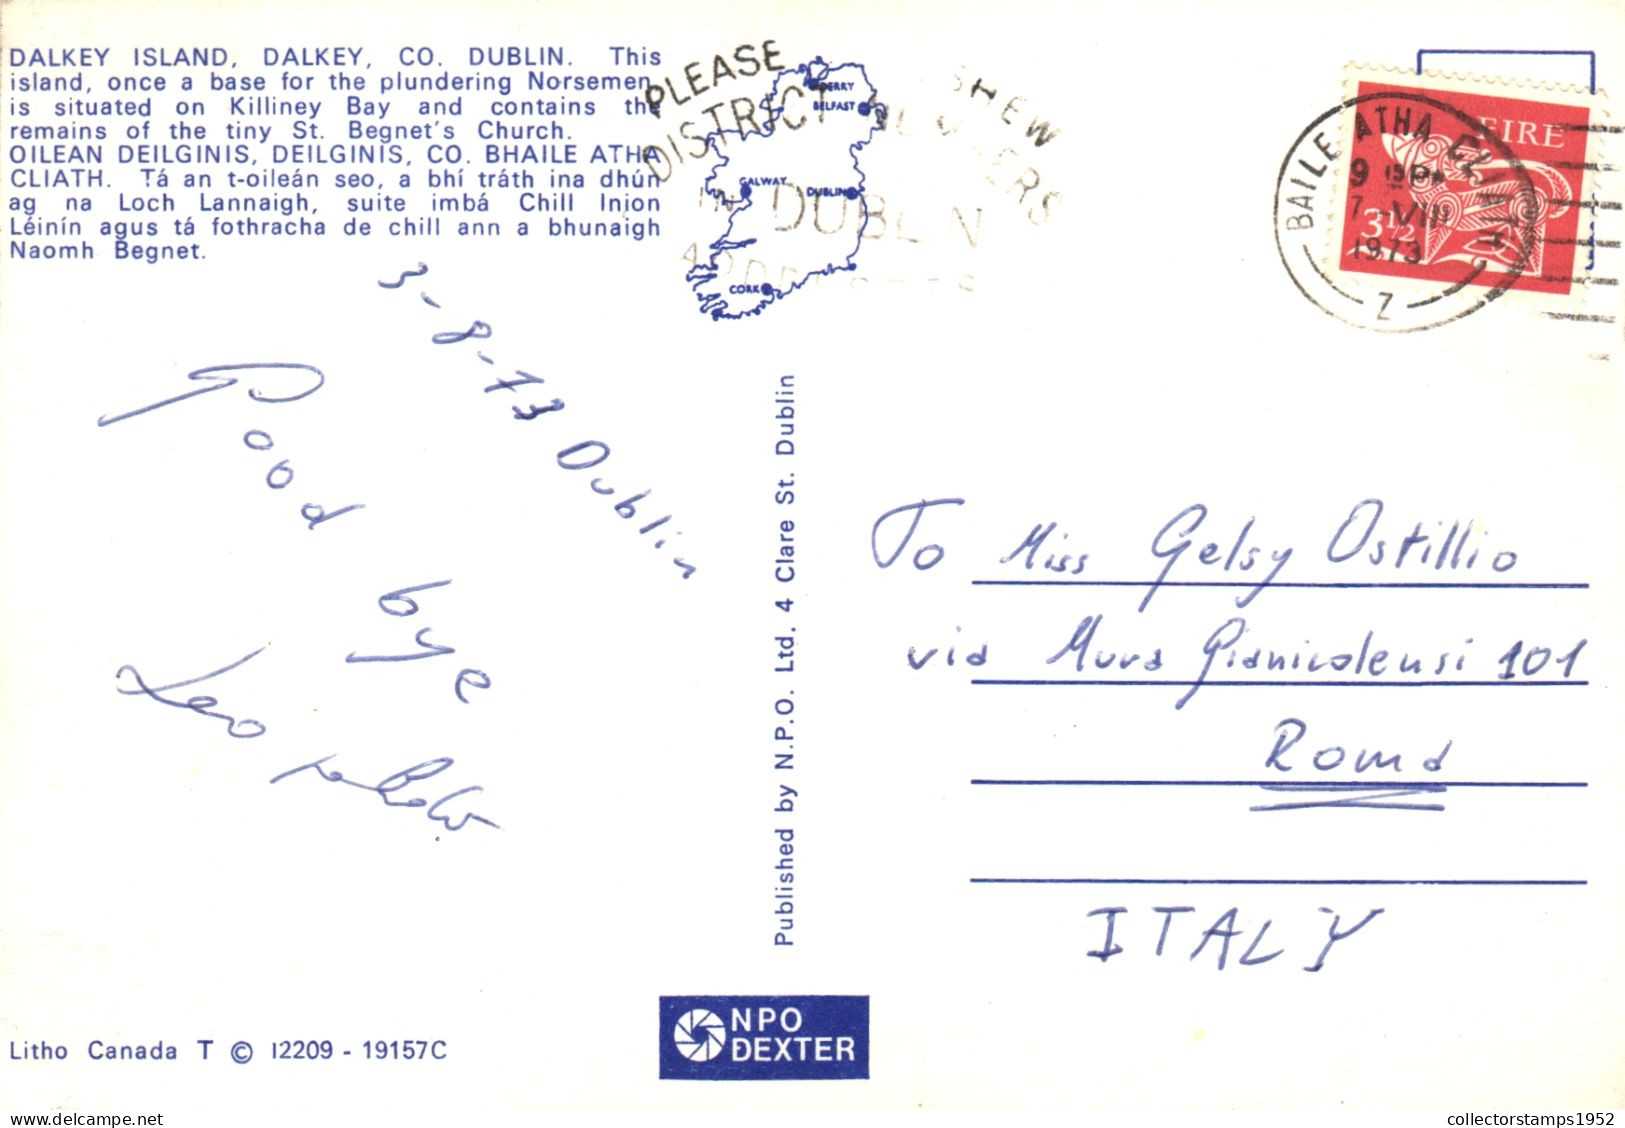 DALKEY ISLAND, DALKEY, CO. DUBLIN. This
island, once a base for the plundering Norsemen,
is situated on Killiney Bay and contains the
remains of the tiny St. Begnet's Church.
OILEAN DEILGINIS, DEILGINIS, CO. BHAILE ATHA
CLIATH. Tá an t-oileán seo, a bhí tráth ina dhún
ag na Loch Lannaigh, suite imbá Chill Inion
Léinín agus tá fothracha de chill ann a bhunaigh
Naomh Begnet.
PLEASE SHEW
DISTRICT NUMBERS
IN DUBLIN
ADDRESSES
DERRY
BELFAST
GALWAY
DUBLIN
CORK
BAILE ATHA CLIATH
9 15PM
7 VIII
1973
Z
EIRE
3½
3-8-73 Dublin
Good bye
Published by N.P.O. Ltd. 4 Clare St. Dublin
To Miss Gelsy Ostillio
via Mura Gianicolensi 101
Roma
ITALY
Litho Canada T © I2209 - 19157C
NPO
DEXTER
collectorstamps1952